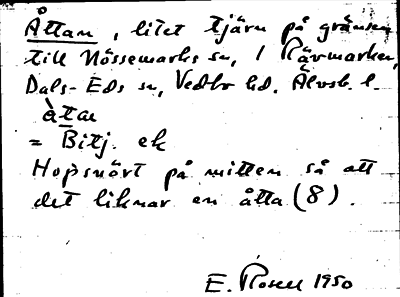 Åttan, litet tjärn på gränsen
till Nössemarks sn, i Rävmarken,
Dals-Eds sn, Vedbo hd. Älvsb. l.
åtan
= Bitj. ek
Hopsnört på mitten så att
det liknar en åtta (8).
E. Rosell 1950